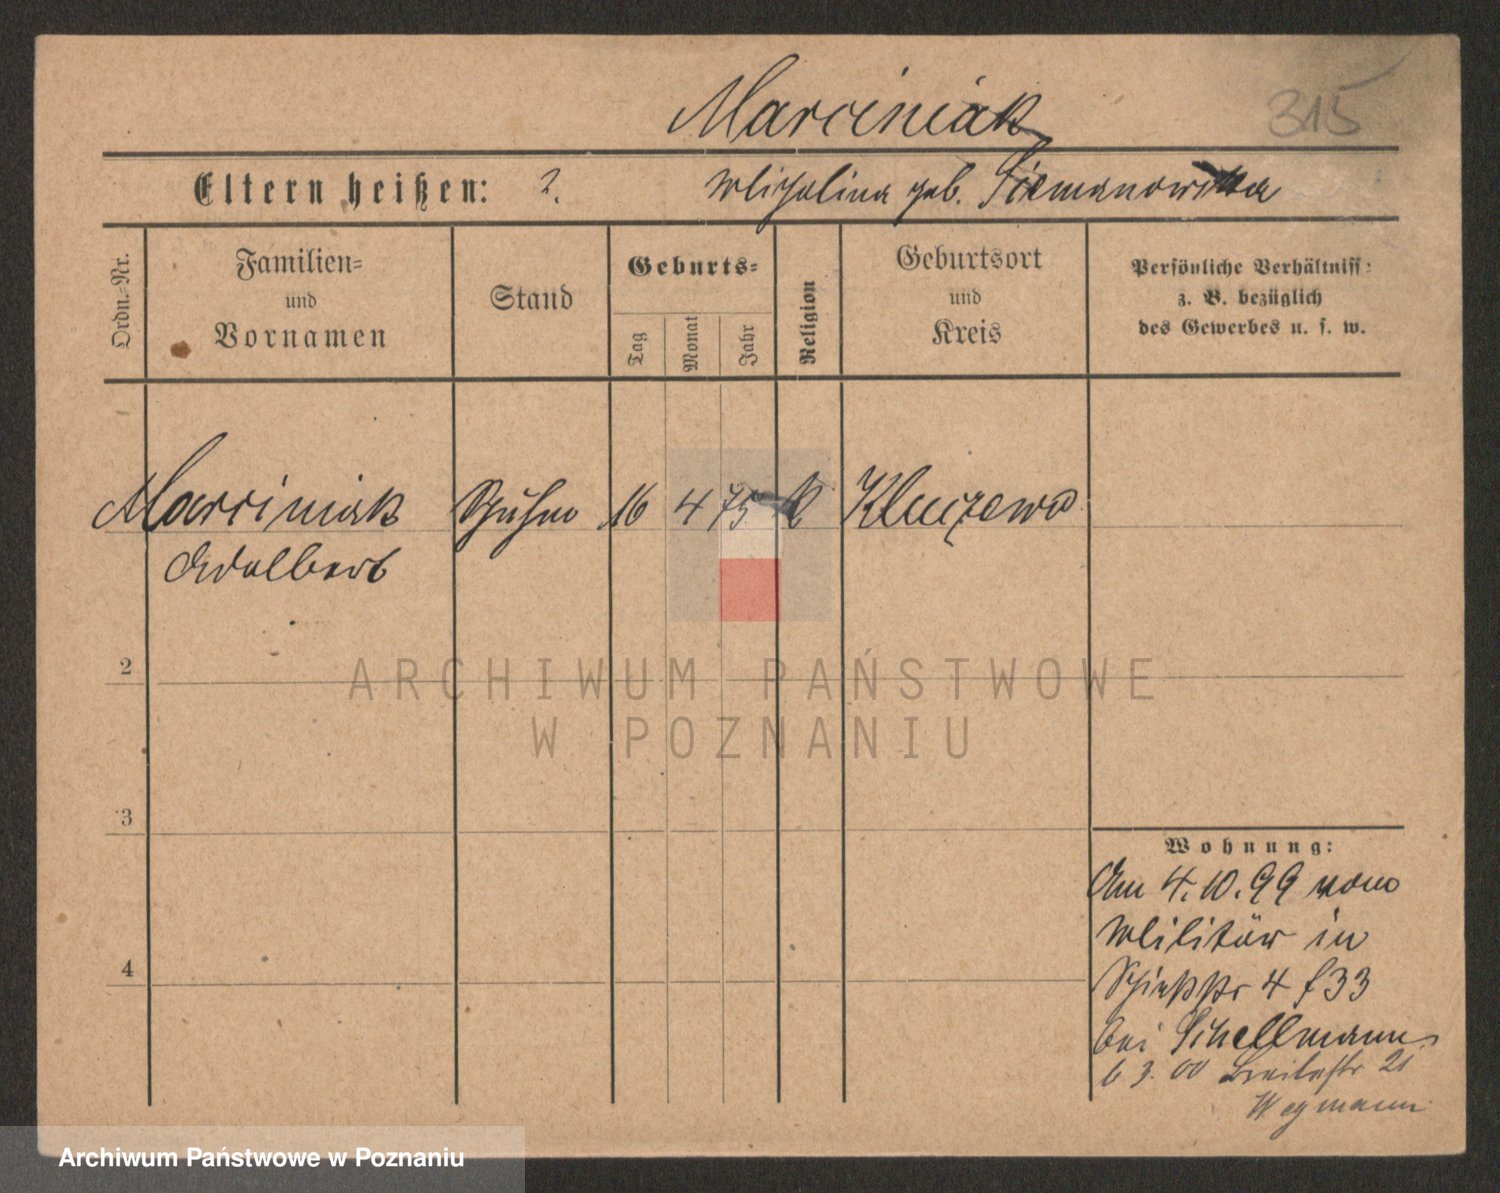 Marciniak 315
Eltern heißen: ?. Michalina geb. Siemanowska
Ordn.-Nr.
Familien-
und
Vornamen
Stand
Geburts-
Tag
Monat
Jahr
Religion
Geburtsort
und
Kreis
Persönliche Verhältniss:
z. B. bezüglich
des Gewerbes u. s. w.
Marciniak 16 4 75 k Kluczewo
Adalbert
2
3
4
Wohnung:
Am 4.10.99 vom
Militär in
Schießstr 4 f 33
bei Schellmann
6 3. 00 Breitestr 21
Wegmann
ARCHIWUM PAŃSTWOWE
W POZNANIU
Archiwum Państwowe w Poznaniu